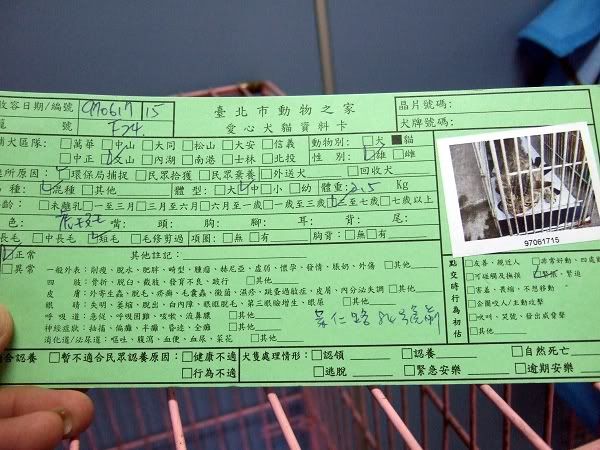 收容日期/編號 970617 15 臺北市動物之家 晶片號碼:
籠 號 F24. 愛心犬貓資料卡 犬牌號碼:
捕犬區隊: □萬華 □中山 □大同 □松山 □大安 □信義 動物別: □犬 ■貓
□中正 □文山 □內湖 □南港 □士林 □北投 性 別: □雄 □雌
所原因: □環保局捕捉 □民眾拾獲 □民眾棄養 □外送犬 □回收犬
種: □混種 □其他 體 型: □大 □中 □小 □幼 體重: 2.5 Kg
齡: □未離乳 □一至三月 □三月至六月 □六月至一歲 □一歲至三歲 □三至七歲 □七歲以上
色: 嘴: 頭: 胸: 腳: 耳: 背: 尾:
□長毛 □中長毛 □短毛 □毛修剪過 項圈: □無 □有 胸背: □無 □有
□正常 其他註記:
□異常 一般外表: 削瘦、脫水、肥胖、畸型、腫瘤、赫尼亞、虛弱、懷孕、發情、脹奶、外傷 □其他
四 肢: 骨折、脫臼、截肢、發育不良、跛行 □其他
皮 膚: 外寄生蟲、脫毛、疥癬、毛囊蟲、黴菌、濕疹、跳蚤過敏症、皮屑、內分泌失調 □其他
眼 睛: 失明、萎縮、脫出、白內障、眼眶脫毛、第三眼瞼增生、眼屎 □其他
呼吸道: 急促、呼吸困難、咳嗽、流鼻膿 □其他
神經症狀: 抽搐、偏癱、半癱、昏迷、全癱 □其他
消化道/泌尿道: 嘔吐、腹瀉、血便、血尿、菜花 □其他
97061715
點交時行為初估
□友善、親近人 □非常好動、四處
□可碰觸及撫摸 □緊張、緊迫
□害羞、畏縮、不想移動
□企圖咬人/主動攻擊
□吠叫、哭號、發出威脅聲
□其他
適合認養 □暫不適合民眾認養原因: □健康不適 犬隻處理情形: □認領 □認養: □自然死亡:
□行為不適 □逃脫 □緊急安樂 □逾期安樂